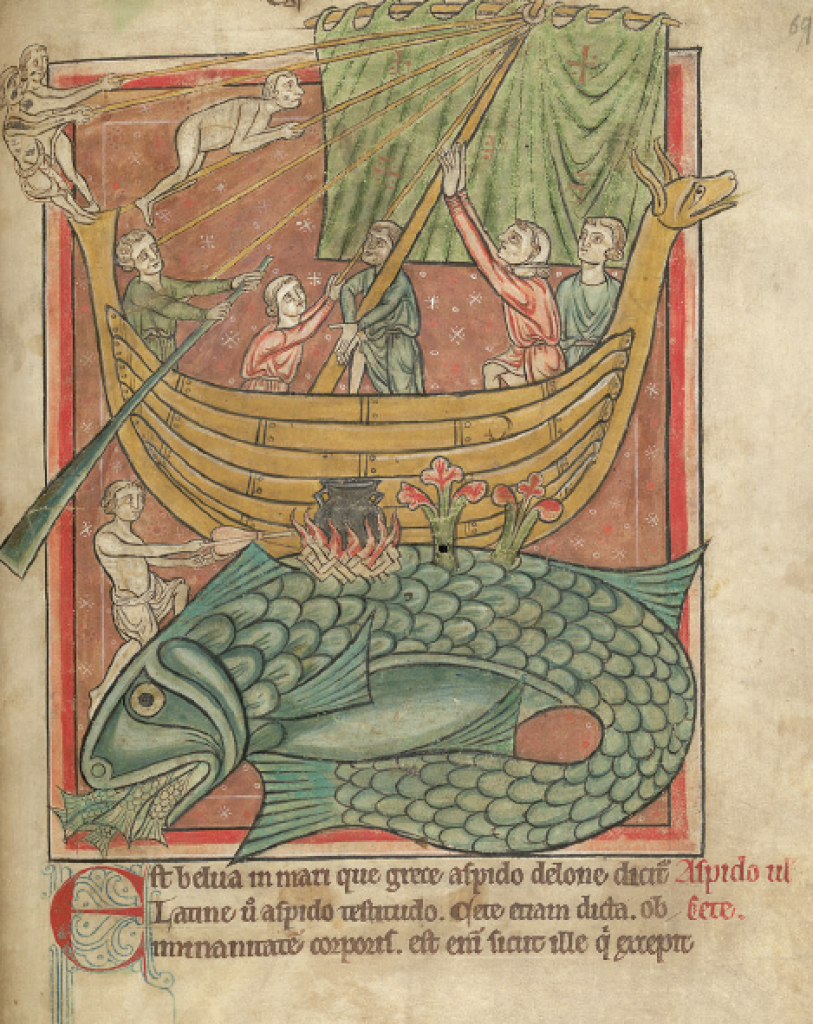 69
Est belua in mari que grece aspido delone dicit᷑ Aspido ul
Latine ů aspido testitudo. Cete etiam dicta. ob Cete.
inmanitatē corporis. est eni̅ sicut ille q̇ excepit